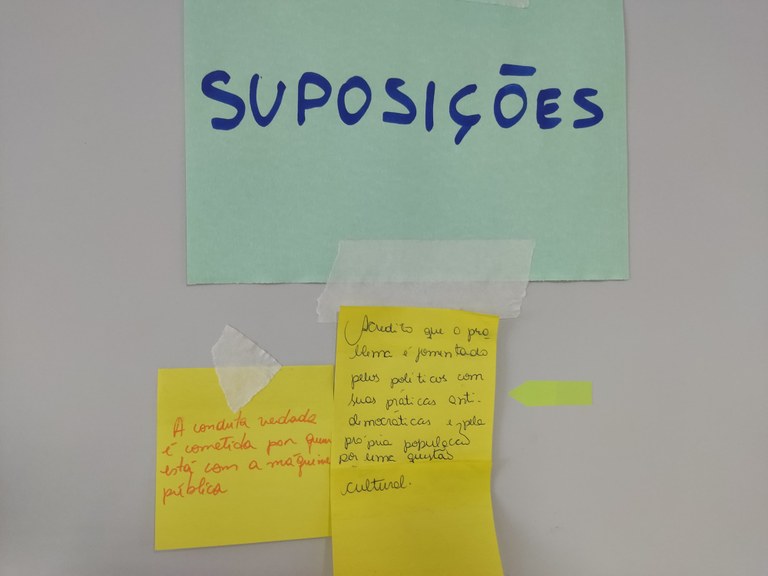 SUPOSIÇÕES
A conduta vedada
é cometida por quem
está com a máquina
pública
Acredito que o pro
blema é fomentado
pelos políticos com
suas práticas anti-
democráticas e pela
própria população
por uma questão
cultural.